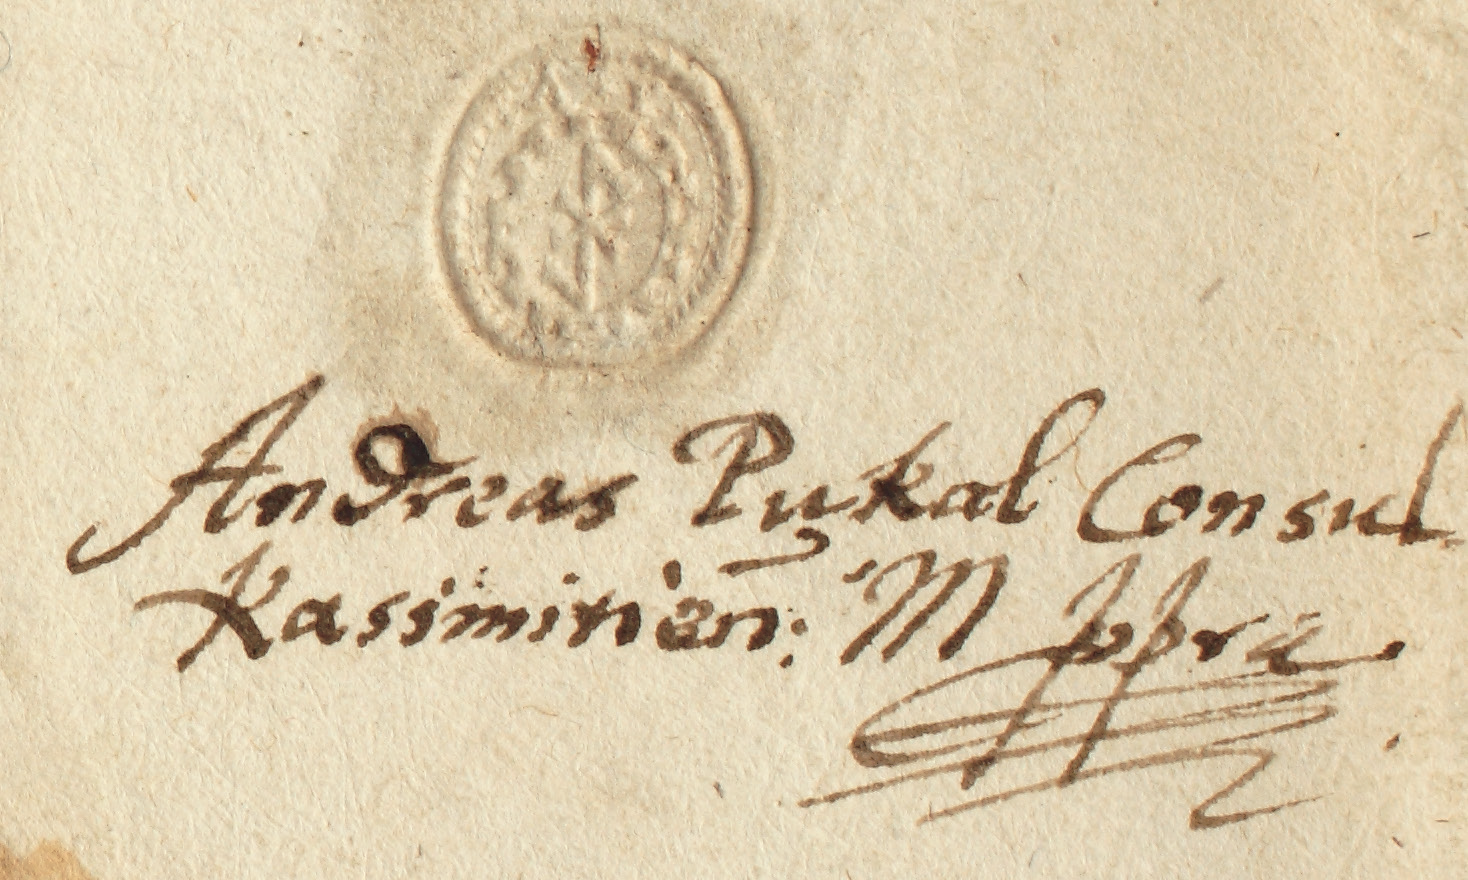 Andreas Pykal Consul
Kasimirien: M ppra.